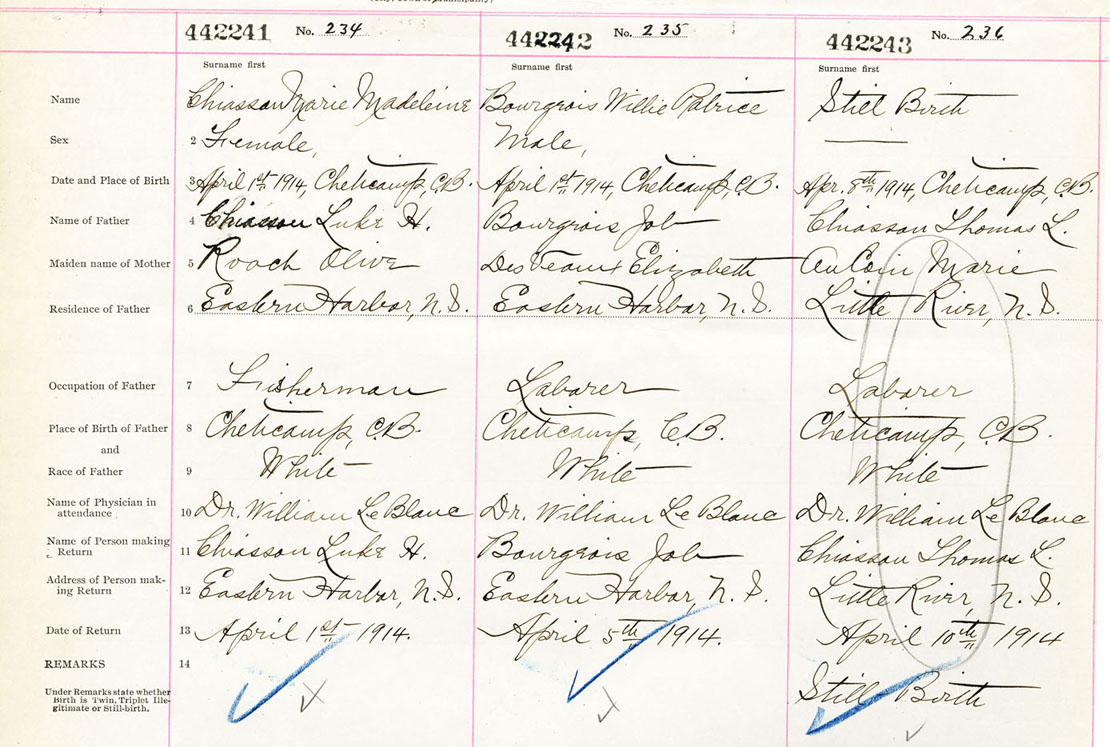 442241 No. 234 442242 No. 235 442243 No. 236
Surname first Surname first Surname first
Name Chiasson Marie Madeleine Bourgeois Willie Patrice Still Birth
Sex 2 Female, Male,
Date and Place of Birth 3 April 1st 1914, Cheticamp, C.B. April 1st 1914, Cheticamp, C.B. Apr. 8th 1914, Cheticamp, C.B.
Name of Father 4 Chiasson Luke H. Bourgeois Job Chiasson Thomas L.
Maiden name of Mother 5 Roach Olive DesVeaux Elizabeth AuCoin Marie
Residence of Father 6 Eastern Harbor, N.S. Eastern Harbor, N.S. Little River, N.S.
Occupation of Father 7 Fisherman Laborer Laborer
Place of Birth of Father 8 Cheticamp, C.B. Cheticamp, C.B. Cheticamp, C.B.
and
Race of Father 9 White White White
Name of Physician in
attendance 10 Dr. William LeBlanc Dr. William LeBlanc Dr. William LeBlanc
Name of Person making
Return 11 Chiasson Luke H. Bourgeois Job Chiasson Thomas L.
Address of Person mak-
ing Return 12 Eastern Harbor, N.S. Eastern Harbor, N.S. Little River, N.S.
Date of Return 13 April 1st 1914. April 5th 1914. April 10th 1914
REMARKS 14
Under Remarks state whether
Birth is Twin, Triplet Ille-
gitimate or Still-birth. Still Birth